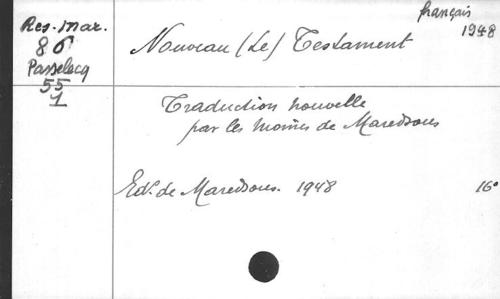 Res. Mar.
86
Passelecq
55
1
français
1948
Nouveau (Le) Testament
Traduction nouvelle
par les moines de Maredsous
Ed. de Maredsous. 1948
16°